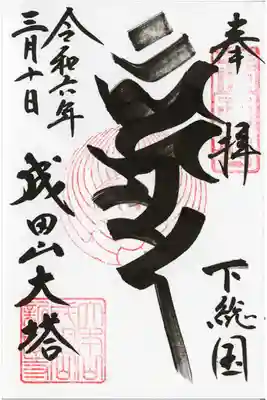 奉拝
下総国
令和六年
三月十日
成田山大塔